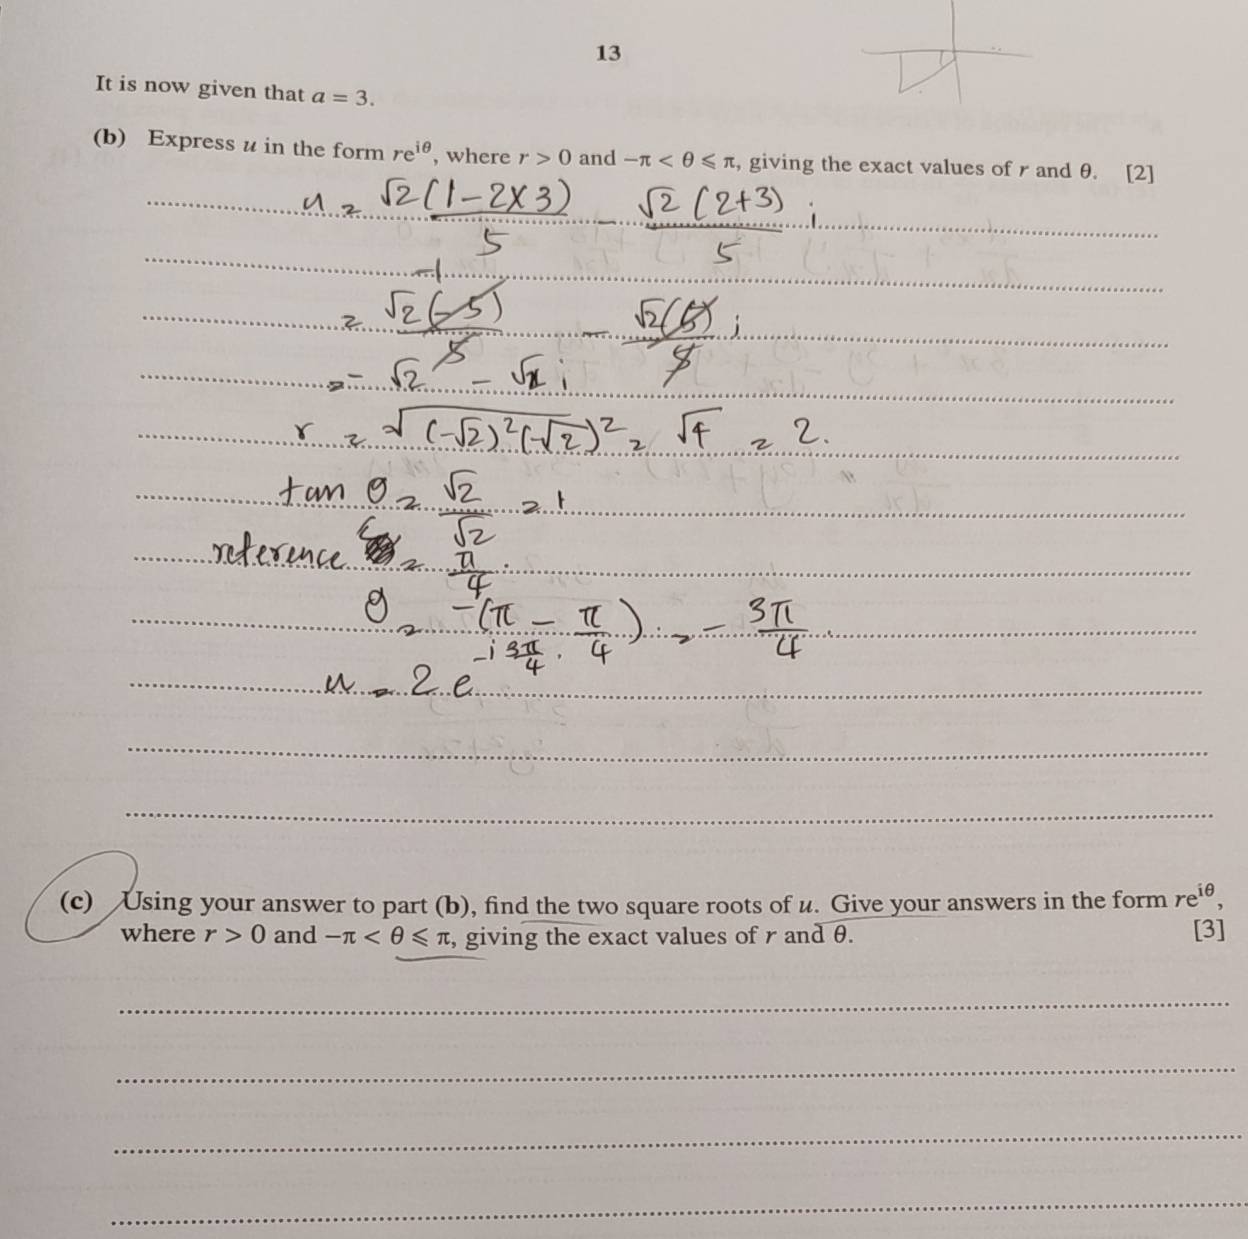 13
It is now given that a = 3.
(b) Express u in the form re^{iθ}, where r > 0 and −π < θ ⩽ π, giving the exact values of r and θ. [2]
u = √2(1 − 2×3)/5 − √2(2+3)/5 i
−1
= √2(−5)/5 − √2(5)/5 i
= −√2 − √2 i
r = √((−√2)²(−√2)²) = √4 = 2.
tan θ = √2/√2 = 1
reference = π/4.
θ = −(π − π/4) = −3π/4.
u = 2e^{−i 3π/4}.
(c) Using your answer to part (b), find the two square roots of u. Give your answers in the form re^{iθ},
where r > 0 and −π < θ ⩽ π, giving the exact values of r and θ. [3]